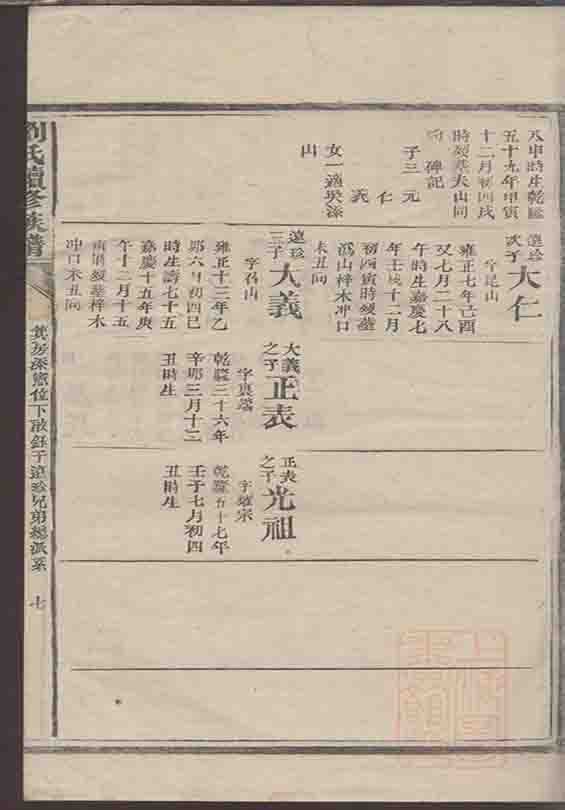 八申時生乾隆
五十九年甲寅
十二月初四戌
時歿葬大山同
碑記
子三元
仁
義
女一適
山
遠珍
次子
大仁
字昆山
雍正七年己酉
又七月二十八
午時生嘉慶七
年壬戌十二月
初四寅時歿葬
溈山梓木冲口
未丑向
遠珍
三子
大義
字名山
雍正十三年乙
卯六月初四巳
時生壽七十五
嘉慶十五年庚
午十二月十五
歿葬梓木
冲口未丑向
大義
之子
正表
字裏端
乾隆三十六年
辛卯三月十二
丑時生
正表
之子
光祖
字耀宗
乾隆五十七年
壬子七月初四
丑時生
劉氏續修族譜
房深位下啟録子遠珍兄弟總派系
七